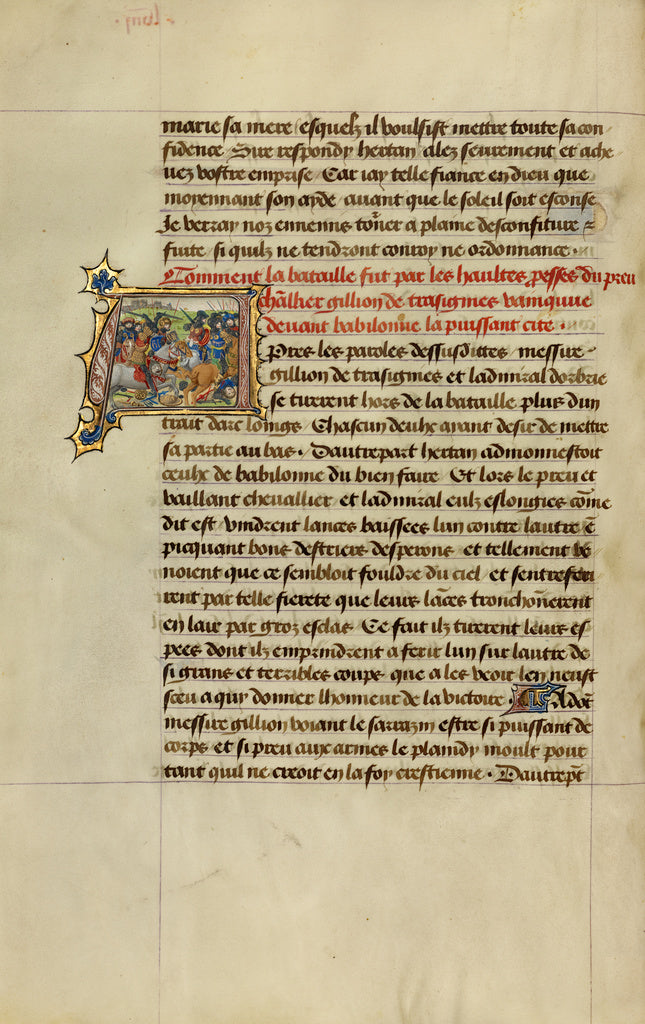 marie sa mere esquelz il voulsist mettre toute sa con
fidence Sire respondy hertan alez seurement et ache
vez vostre emprise Car iay telle fiance en dieu que
moyennant son ayde auant que le soleil soit esconse
Je verray noz ennemis to'ner a plaine desconfiture z
fuite si quilz ne tendront conroy ne ordonnance .
Comment la bataille fut par les haultes pesses du preu
chl'lier gillion de trasignies vainquue
deuant babilonne la puissant cite .
Apres les paroles dessusdittes messire
gillion de trasignies et ladmiral dorbrie
se tirerent hors de la bataille plus dun
trait darc loings Chascun deulx ayant desir de mettre
sa partie au bas . Dautrepart hertan admonnestoit
ceulx de babilonne du bien faire Et lors le preu et
vaillant cheuallier et ladmiral eulx eslongies cōme
dit est vindrent lances baissees lun contre lautre ē
picquant bons destriers desperons et tellement ve
noient que ce sembloit fouldre du ciel et sentreferi
rent par telle fierete que leurs lāces tronchōnerent
en lair par groz esclas Ce fait ilz tirerent leurs es
pees dont ilz emprindrent a ferir lun sur lautre de
si grans et terribles coups que a les veoir len neust
sceu a quy donner lhonneur de la victoire . Adōt
messire gillion voiant le sarrazin estre si puissant de
corps et si preu aux armes le plaindy moult pour
tant quil ne creoit en la foy crestienne . Dautrep't